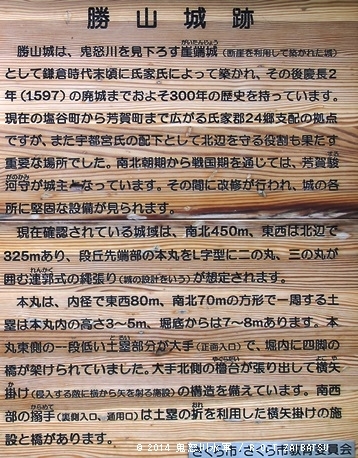 勝山城跡
勝山城は、鬼怒川を見下ろす崖端城(断崖を利用して築かれた城)
として鎌倉時代末頃に氏家氏によって築かれ、その後慶長2
年(1597)の廃城までおよそ300年の歴史を持っています。
現在の塩谷町から芳賀町まで広がる氏家郡24郷支配の拠点
ですが、また宇都宮氏の配下として北辺を守る役割も果たす
重要な場所でした。南北朝期から戦国期を通じては、芳賀駿
河守が城主となっています。その間に改修が行われ、城の各
所に堅固な設備が見られます。
現在確認されている城域は、南北450m、東西は北辺で
325mあり、段丘先端部の本丸をL字型に二の丸、三の丸が
囲む連郭式の縄張り(城の設計をいう)が想定されます。
本丸は、内径で東西80m、南北70mの方形で一周する土
塁は本丸内の高さ3〜5m、堀底からは7〜8mあります。本
丸東側の一段低い土塁部分が大手(正面入口)で、堀内に四脚の
橋が架けられていました。大手北側の櫓台が張り出して横矢
掛け(侵入する敵に横から矢を射る施設)の構造を備えています。南西
部の搦手(裏側入口、通用口)は土塁の折を利用した横矢掛けの施
設と橋があります。
さくら市・さくら市教育委員会